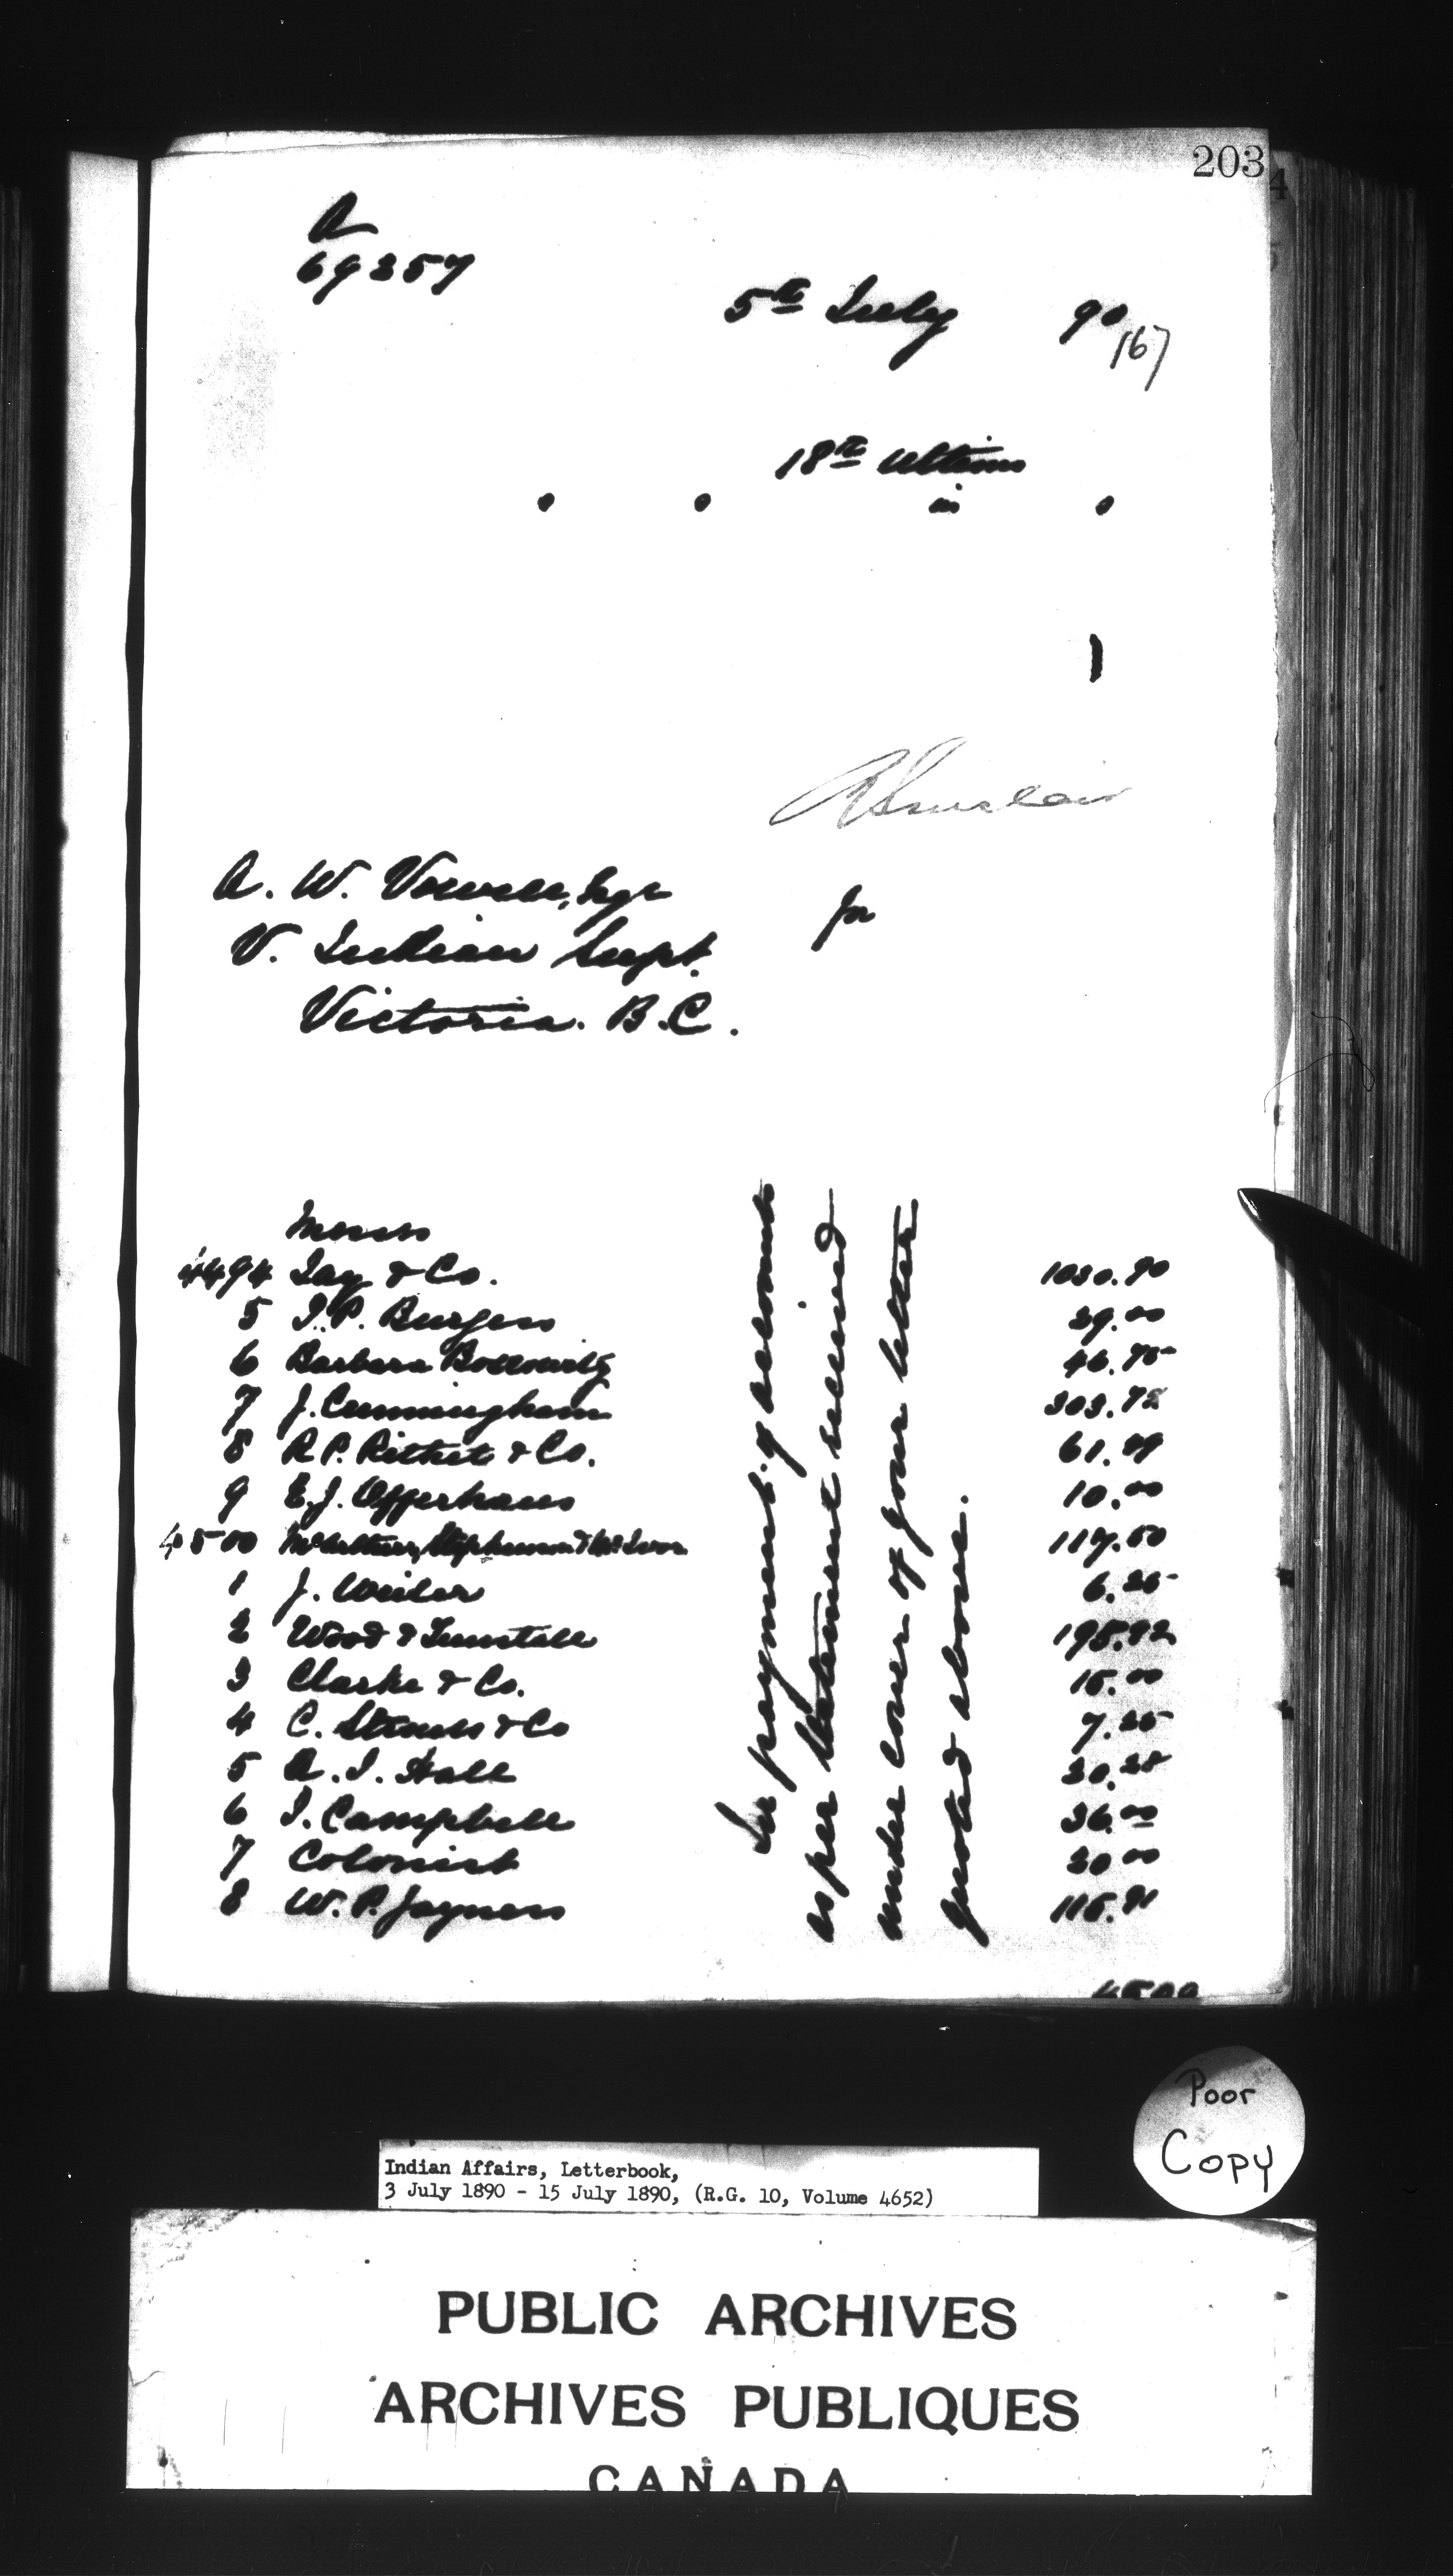 203
A
69257
5th July 90
167
18th Ultimo
in
R Sinclair
A. W. Vowell, Esqr
for
V. Indian Supt.
Victoria. B.C.
Messrs
4494 Jay & Co. 1030.90
5 I.P. Burgess 29.00
6 Barbara Boscowitz 46.75
7 J. Cunningham 303.72
8 R.P. Rithet & Co. 61.29
9 E.J. Offerhaus 10.00
4500 McArthur, Stephenson & McIvor 117.50
1 J. Weiler 6.25
2 Wood & Tunstall 195.92
3 Clarke & Co. 15.00
4 C. Strouss & Co 7.25
5 A. J. Hall 30.25
6 I. Campbell 36.00
7 Colonist 20 00
8 W. P. Jaynes 115.91
In payment of accounts
as per Statement received
under cover of your letter
quoted above.
4509
Poor
Copy
Indian Affairs, Letterbook,
3 July 1890 - 15 July 1890, (R.G. 10, Volume 4652)
PUBLIC ARCHIVES
ARCHIVES PUBLIQUES
CANADA